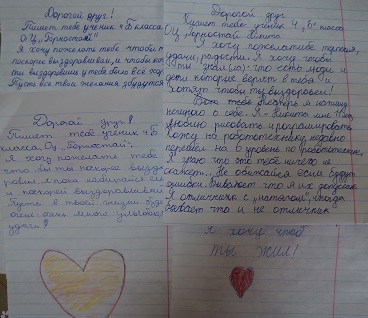 Дорогой друг!
Пишет тебе ученик 4 Б класса
О.Ц. "Горностай".
Я хочу пожелать тебе чтобы ты
поскорее выздоравливал, и чтобы когда
ты выздоровишь у тебя было все хорошо
Пусть все твои желания сбудутся
Дорогой друг!
Пишет тебе ученик 4 Б
класса Оц "Горностай".
Я хочу пожелать тебе
что бы ты поскорее выздо
ровил. Пока набирайся сил
и поскорей выздоравливай
Пусть в твоей жизни будет
очень-очень много улыбок и
удачи!
Дорогой друг
Пишет тебе ученик 4 "Б" класса
ОЦ Горностай Никита
Я хочу пожелать тебе здоровья,
удачи, радости. Я хочу чтобы
ты знал(ла) что есть люди и
дети которые верят в тебя и
хотят чтобы ты выздоровел!
я напишу
немного о себе. Я - Никита мне 10 лет
я люблю рисовать и программировать
хожу на робототехнику, недавно
перевел на 6 уровень по робототехнике,
Я знаю что это тебе ничего не
скажет. Не обижайся если будут
ошибки. Бывает что я их допускаю
Я отличник с "натягом", иногда
бывает что и не отличник
Я хочу чтоб
ТЫ ЖИЛ!